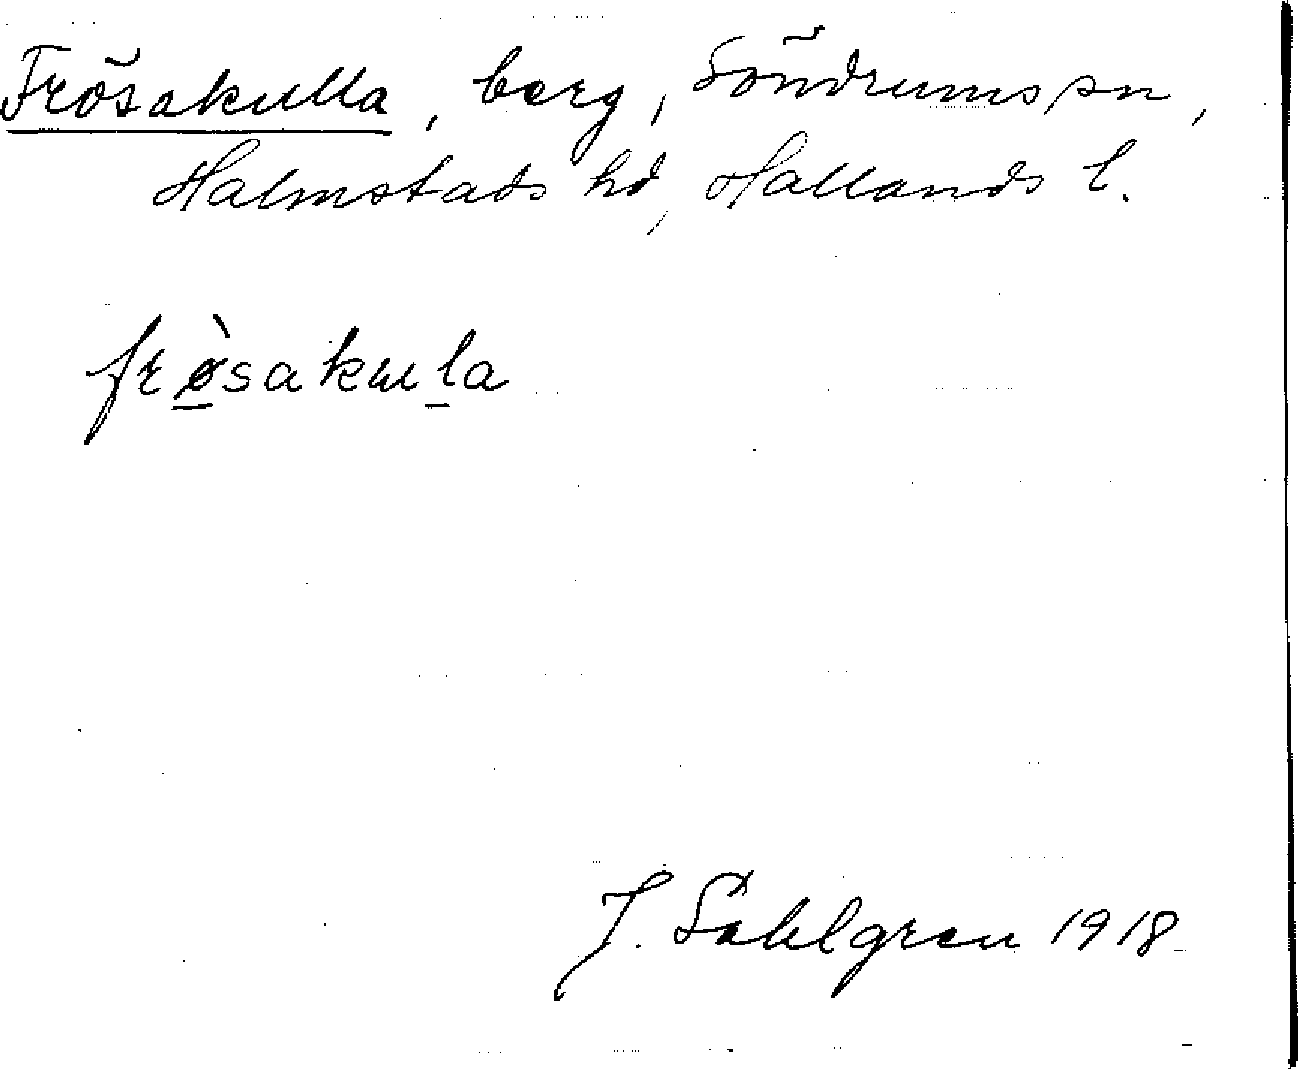 Frösakulla, berg, Söndrums sn,
Halmstads hd, Hallands l.
frø̀sakula
J. Sahlgren 1918